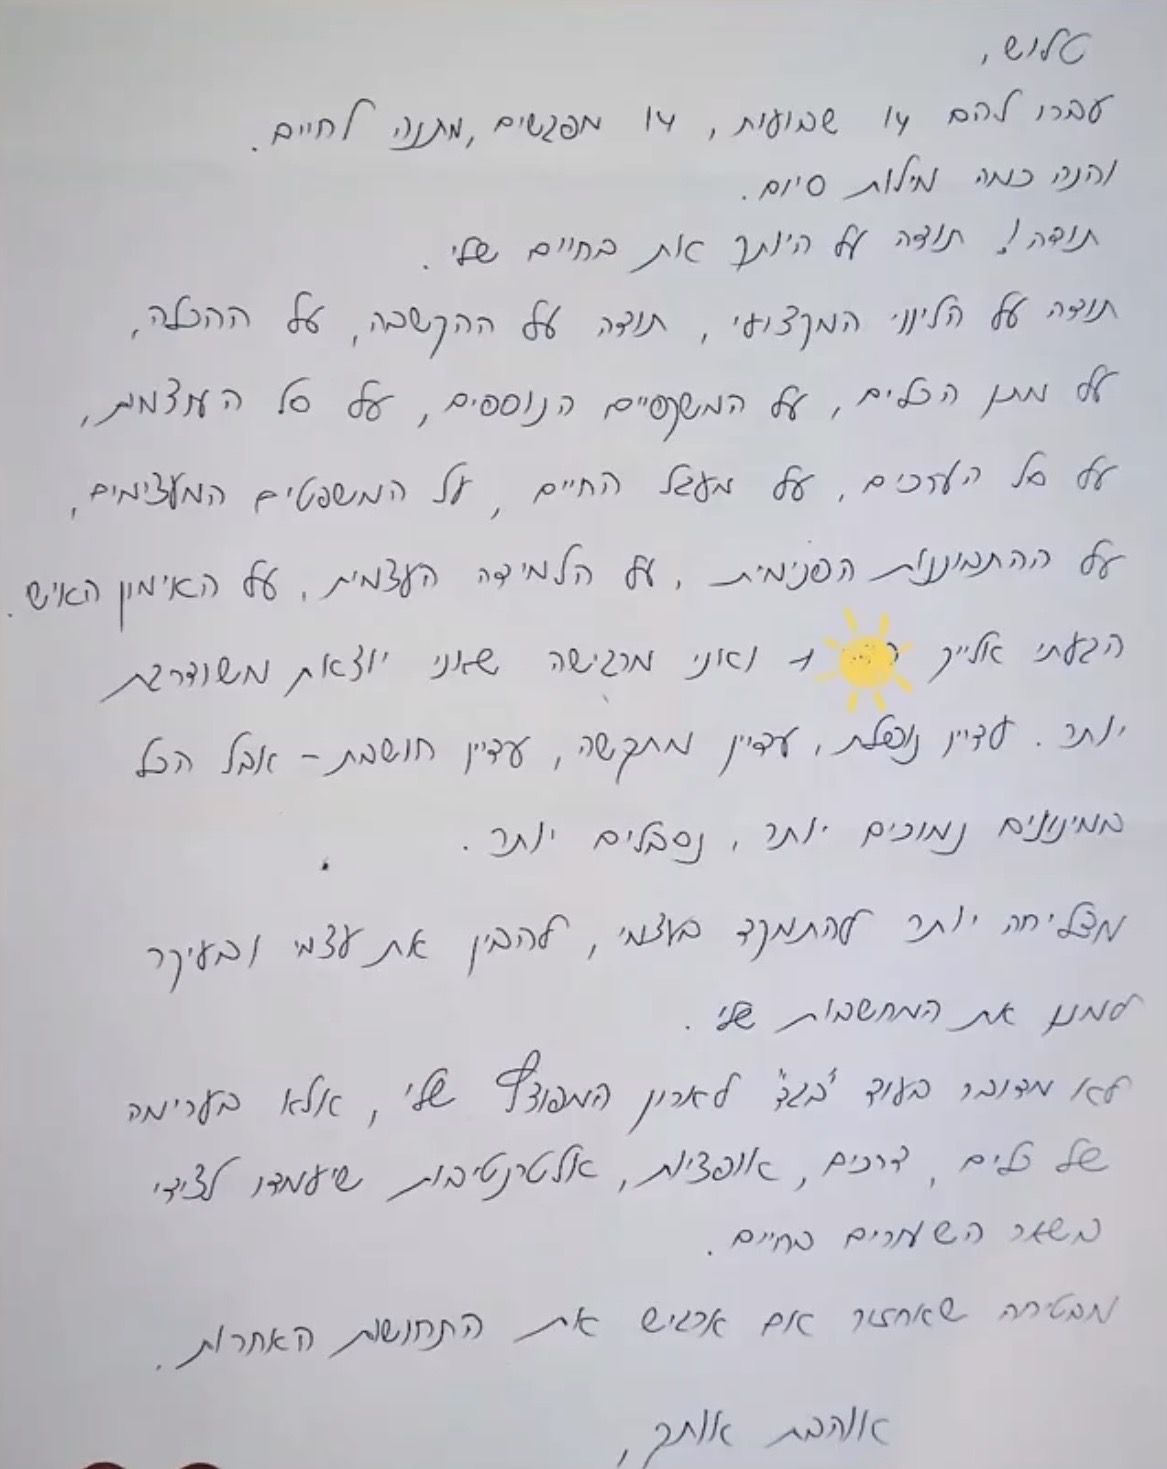 טלוש,
עברו להם 14 שבועות, 14 מפגשים, מתנה לחיים.
והנה כמה מילות סיום.
תודה! תודה על היותך את בחיים שלי.
תודה על הליווי המקצועי, תודה על ההקשבה, על ההכלה,
על מתן הכלים, על המשקפיים הנוספים, על סל העוצמות,
על סל הערכים, על מעגל החיים, על המשפטים המעצימים,
על ההתבוננות הפנימית, על הלמידה העצמית, על האימון האישי.
הגעתי אלייך ואני מרגישה שאני יוצאת משודרגת
יותר. עדיין נופלת, עדיין מתקשה, עדיין חושבת - אבל הכל
במינונים נמוכים יותר, נסבלים יותר.
מצליחה יותר להתמקד בעצמי, להבין את עצמי ובעיקר
למנן את המחשבות שלי.
לא מדובר בעוד "בגד" לארון המפוצץ שלי, אלא בערימה
של כלים, דרכים, אופציות, אלטרנטיבות שיעמדו לצידי
בשאר השיעורים בחיים.
מבטיחה שאחזור אם ארגיש את התחושות האחרות.
אוהבת אותך,